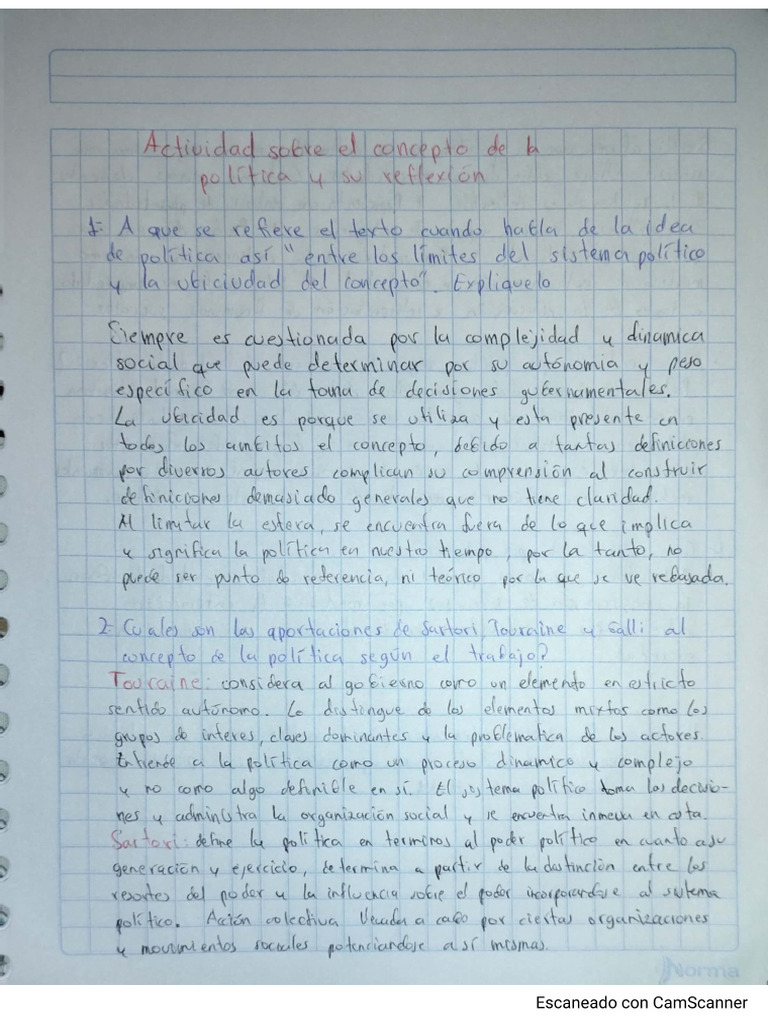 Actividad sobre el concepto de la
política y su reflexión
1- A que se refiere el texto cuando habla de la idea
de política así "entre los límites del sistema político
y la ubiciudad del concepto". Expliquelo
Siempre es cuestionada por la complejidad y dinamica
social que puede determinar por su autónomia y peso
específico en la toma de decisiones gubernamentales.
La ubicidad es porque se utiliza y esta presente en
todos los ambitos el concepto, debido a tantas definicciones
por diversos autores complican su comprensión al construir
definicciones demasiado generales que no tiene claridad.
Al limitar la esfera, se encuentra fuera de lo que implica
y significa la política en nuestro tiempo, por la tanto, no
puede ser punto de referencia, ni teórico por la que se ve rebasada.
2- Cuales son las aportaciones de Sartori, Touraine y Galli al
concepto de la política según el trabajo?
Touraine: considera al gobierno como un elemento en estricto
sentido autónomo. Lo distingue de los elementos mixtos como los
grupos de interes, clases dominantes y la problematica de los actores.
Entiende a la política como un proceso dinamico y complejo
y no como algo definible en sí. El sistema político toma las decisio-
nes y administra la organización social y se encuentra inmersa en esta.
Sartori: define la política en terminos al poder político en cuanto a su
generación y ejercicio, determina a partir de la distinción entre los
resortes del poder y la influencia sobre el poder incorporandose al sistema
político. Acción colectiva llevada a cabo por ciertas organizaciones
y movimientos sociales potenciandose a sí mismas.
Norma
Escaneado con CamScanner